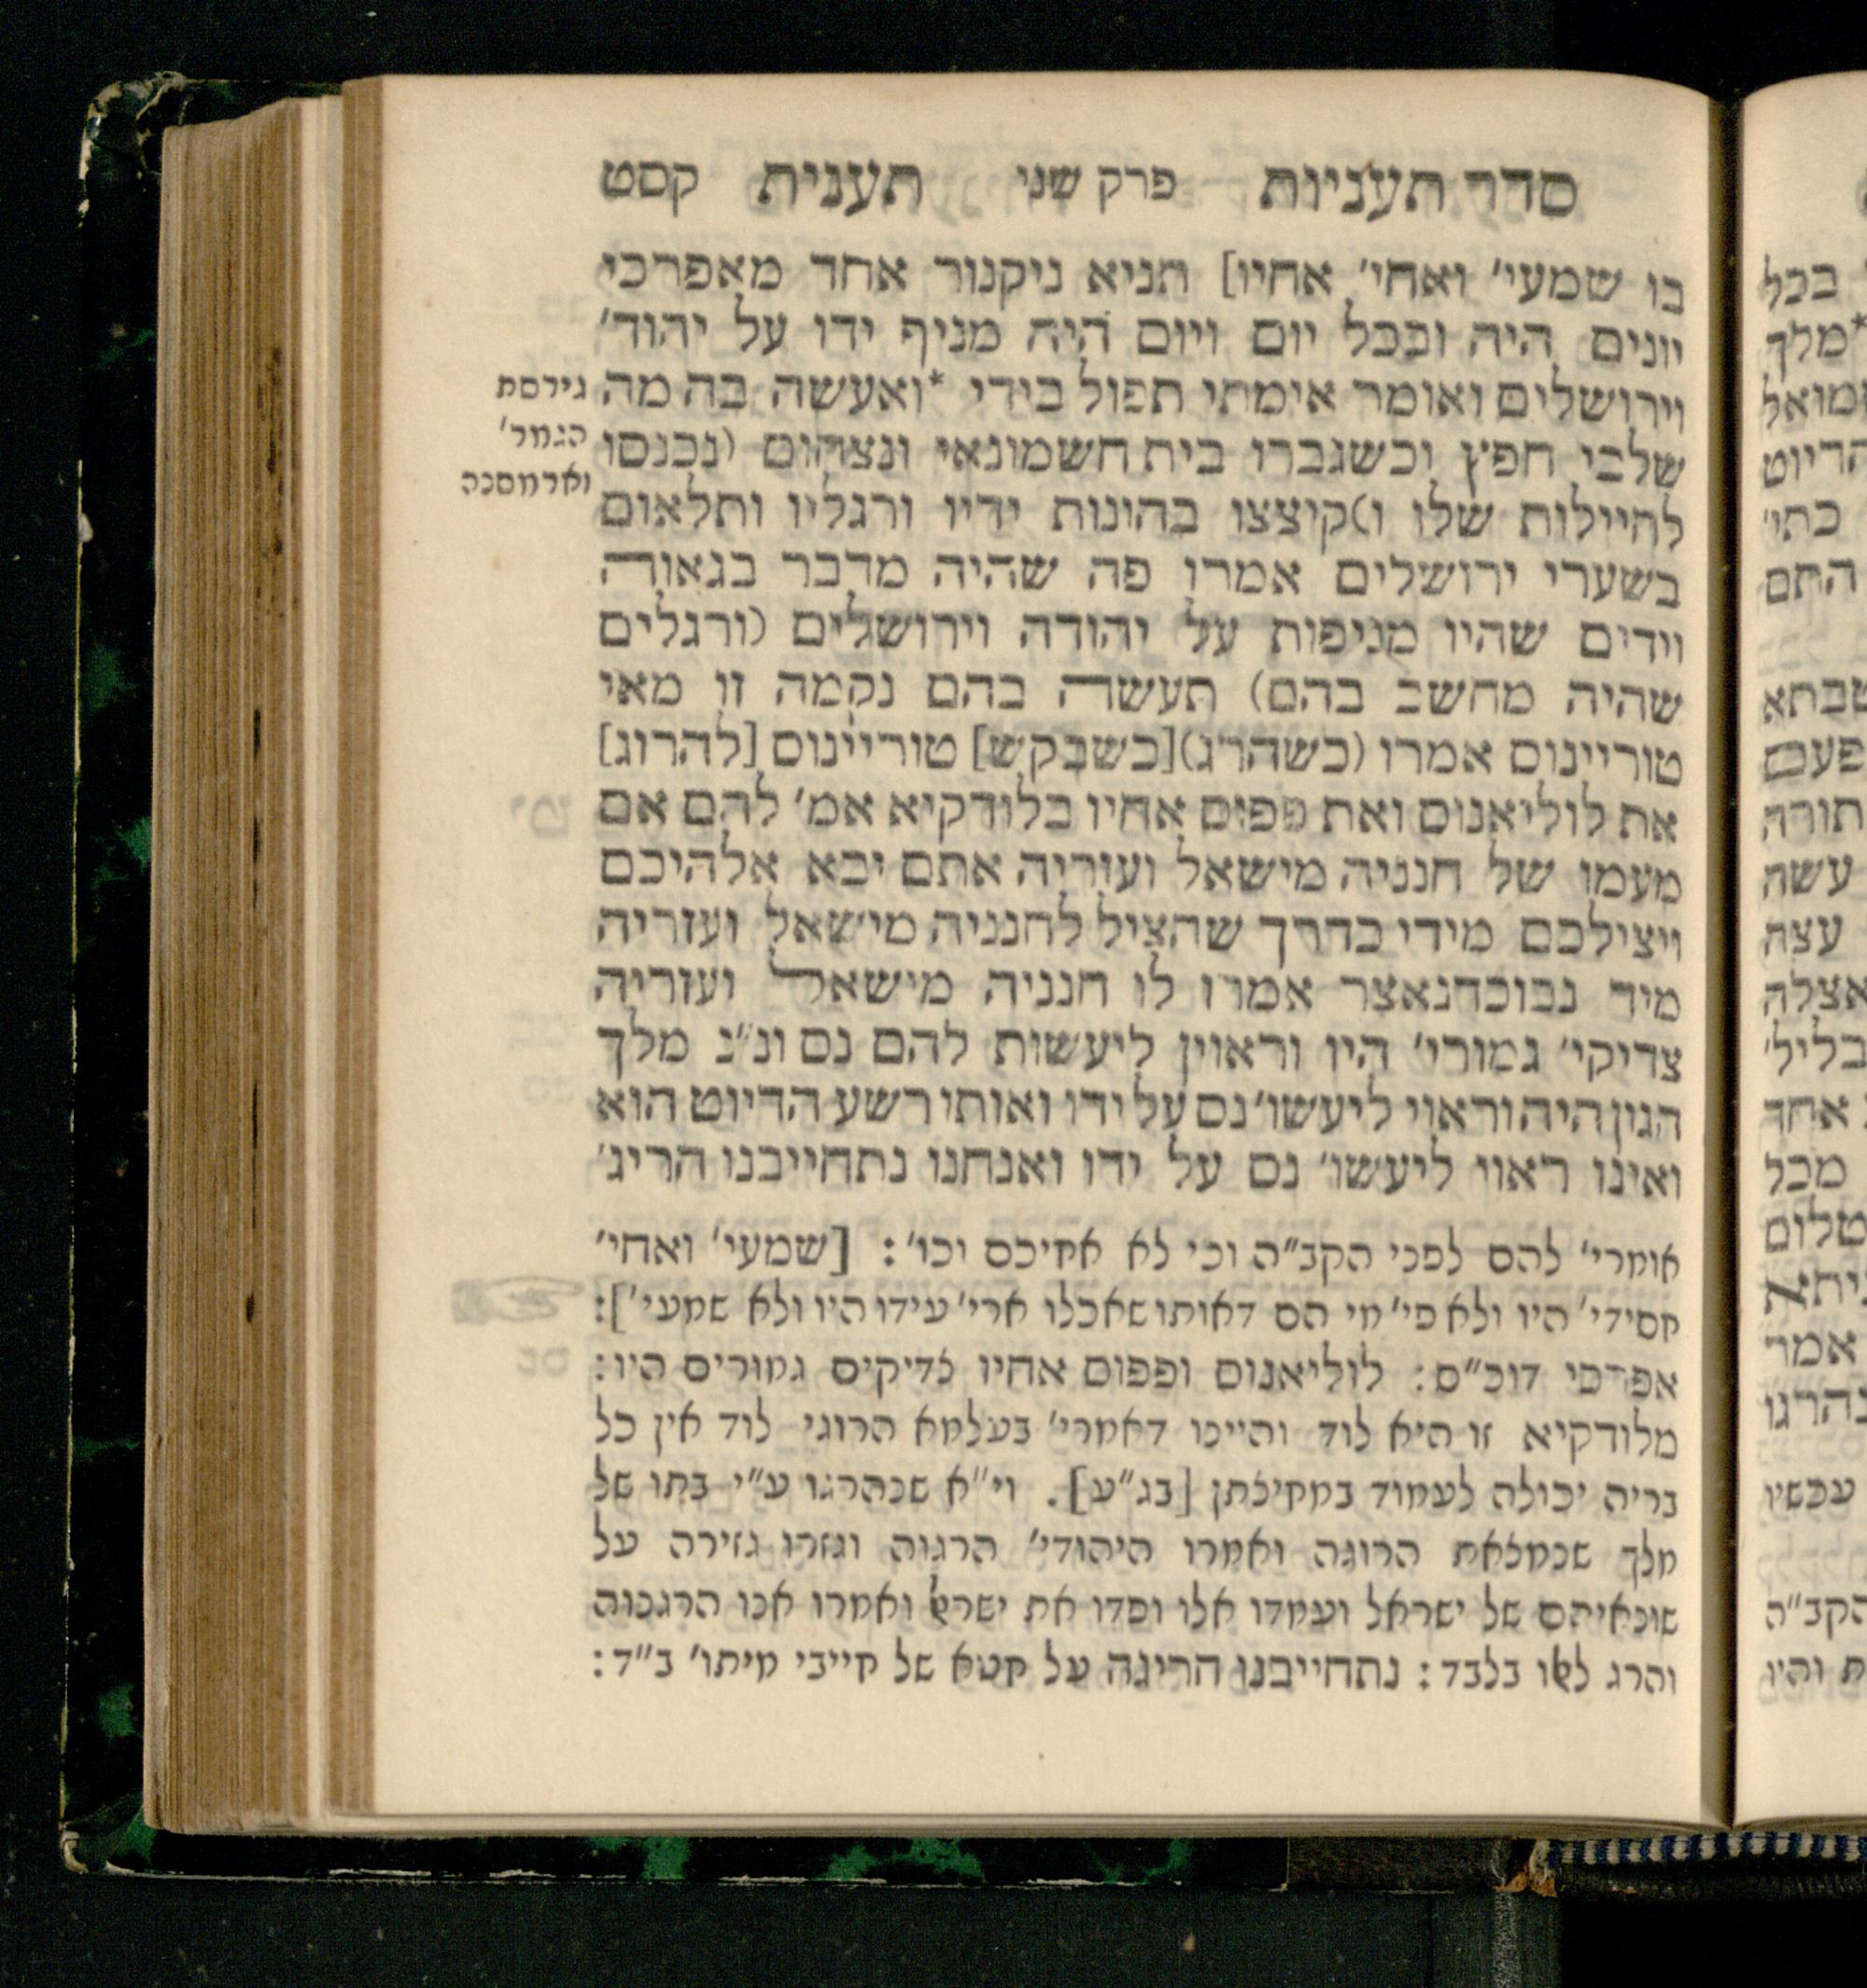 סדר תעניות פרק שני תענית קסט
בו שמעי׳ ואחי׳ אחיו] תניא ניקנור אחד מאפרכי
יונים היה ובכל יום ויום היה מניף ידו על יהוד׳
וירושלים ואומר אימתי תפול בידי *ואעשה בה מה
שלבי חפץ וכשגברו בית חשמונאי ונצחום (נכנסו
לחיילות שלו ו)קיצצו בהונות ידיו ורגליו ותלאום
בשערי ירושלים אמרו פה שהיה מדבר בגאוה
וידים שהיו מניפות על יהודה וירושלים (ורגלים
שהיה מחשב בהם) תעשה בהם נקמה זו מאי
טוריינוס אמרו (כשהרג)[כשבקש] טוריינוס [להרוג]
את לוליאנוס ואת פפוס אחיו בלודקיא אמ׳ להם אם
מעמו של חנניה מישאל ועזריה אתם יבא אלהיכם
ויצילכם מידי כדרך שהציל לחנניה מישאל ועזריה
מיד נבוכדנאצר אמרו לו חנניה מישאל ועזריה
צדיקי׳ גמורי׳ היו וראוין ליעשות להם נס ונ״נ מלך
הגון היה וראוי ליעשו׳ נס על ידו ואותו רשע הדיוט הוא
ואינו ראוי ליעשו׳ נס על ידו ואנחנו נתחייבנו הריג׳
גירסת
הגמר׳
וארמסנה
אומרי׳ להם לפני הקב״ה וכי לא חיכס וכו׳: [שמעי׳ ואחי׳
חסידי׳ היו ולא פי׳ מי הם דאותו שאכלו ארי׳ עידו היו ולא שמעי׳]:
אפרכי דוכ״ס: לוליאנוס ופפוס אחיו צדיקים גמורים היו:
מלודקיא זו היא לוד והיינו דאמרי׳ בעלמא הרוגי לוד אין כל
בריה יכולה לעמוד במחיצתן [בג״ע]. וי״א שנהרגו ע״י בתו של
מלך שנמצאת הרוגה ואמרו היהודי׳ הרגוה וגזרו גזירה על
שונאיהם של ישראל ועמדו אלו ופדו את ישראל ואמרו אנו הרגנוה
והרג לאלו בלבד: נתחייבנו הריגה על חטא של חייבי מיתו׳ ב״ד: